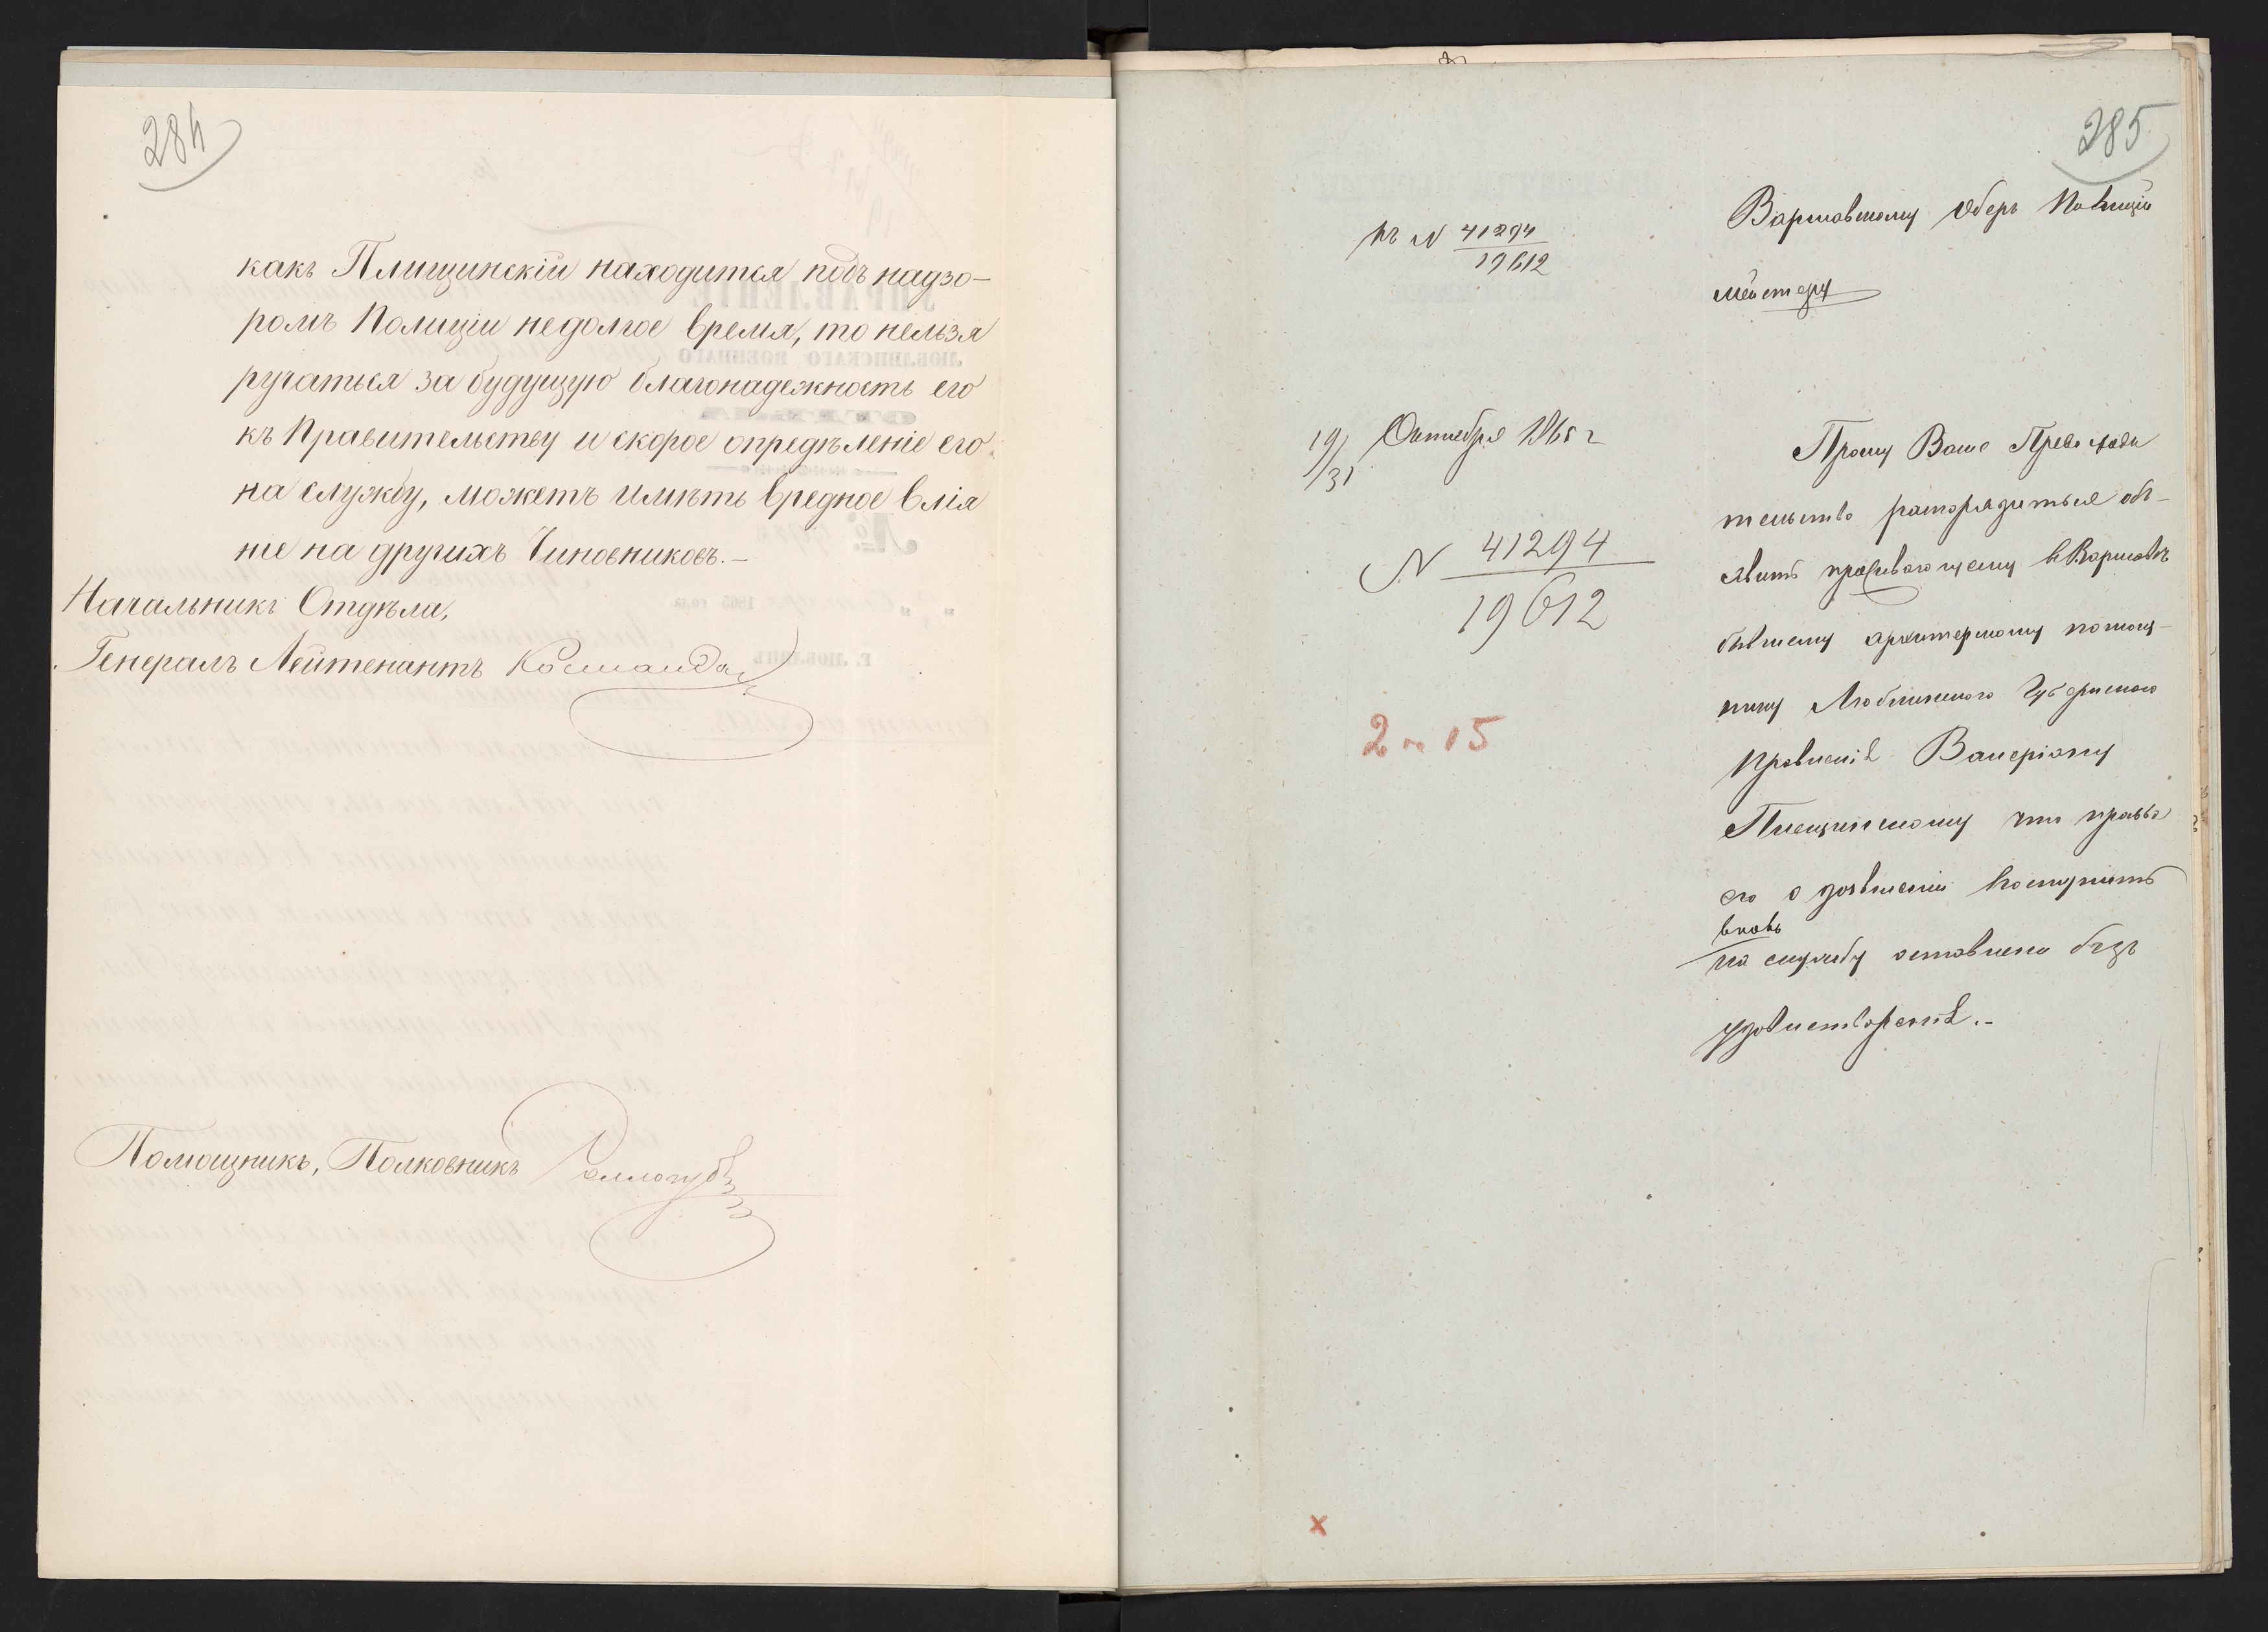 284
какъ Плищинскій находится подъ надзо-
ромъ Полиціи недолгое время, то нельзя
ручаться за будущую благонадежность его
къ Правительству и скорое опредѣленіе его
на службу, можетъ имѣть вредное влія
ніе на другихъ Чиновниковъ.-
Начальникъ Отдѣла,
Генералъ Лейтенантъ
Помощникъ, Полковникъ
285
къ N 41294
19612
Варшавскому Оберъ Полиціи
мейстеру
19/31 Октября 1865 г
N 41294
19612
2 15
Прошу Ваше Превосходи
тельство распорядиться объ-
явить проживающему въ Варшавѣ
бывшему архитекторскому помощ-
нику Люблинскаго Губернскаго
Правленія Валеріану
Плещинскому что
его о дозволеніи поступить
вновь
на службу оставлена безъ
удовлетворенія.-
х